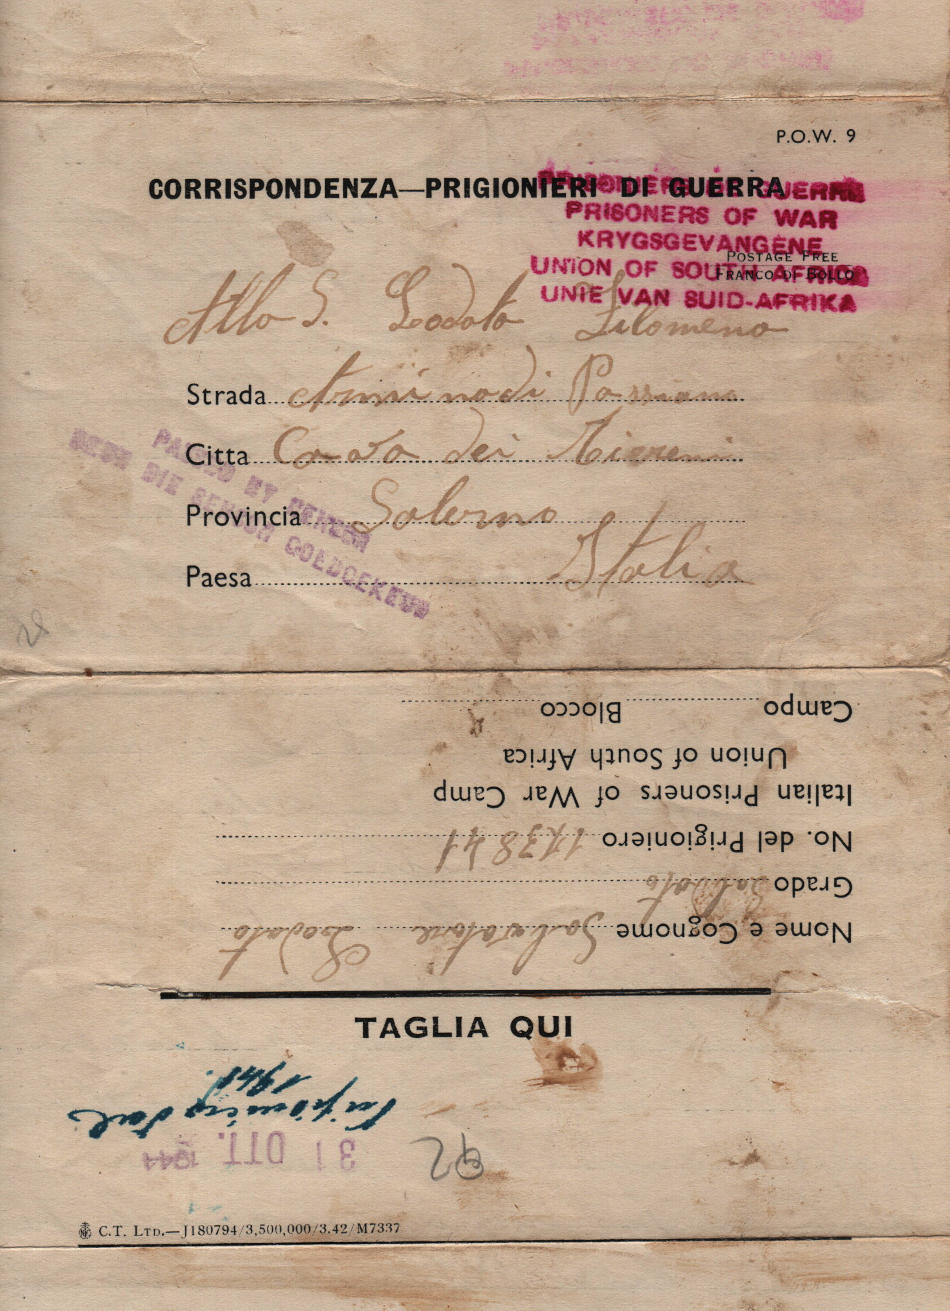 P.O.W. 9
CORRISPONDENZA—PRIGIONIERI DI GUERRA
PRISONERS OF WAR
KRYGSGEVANGENE
POSTAGE FREE
UNION OF SOUTH AFRICA
FRANCO DI BOLLO
UNIE VAN SUID-AFRIKA
Alla S. Lodato Filomena
Strada
Citta Cava dei Tirreni
PASSED BY CENSOR
DEUR DIE SENSOR GOEDGEKEUR
Provincia Salerno
Paesa Italia
Campo Blocco
Union of South Africa
Italian Prisoners of War Camp
No. del Prigioniero
Grado Soldato
Nome e Cognome Salvatore Lodato
TAGLIA QUI
31 OTT. 1944
92
C.T. LTD.—J180794/3,500,000/3.42/M7337